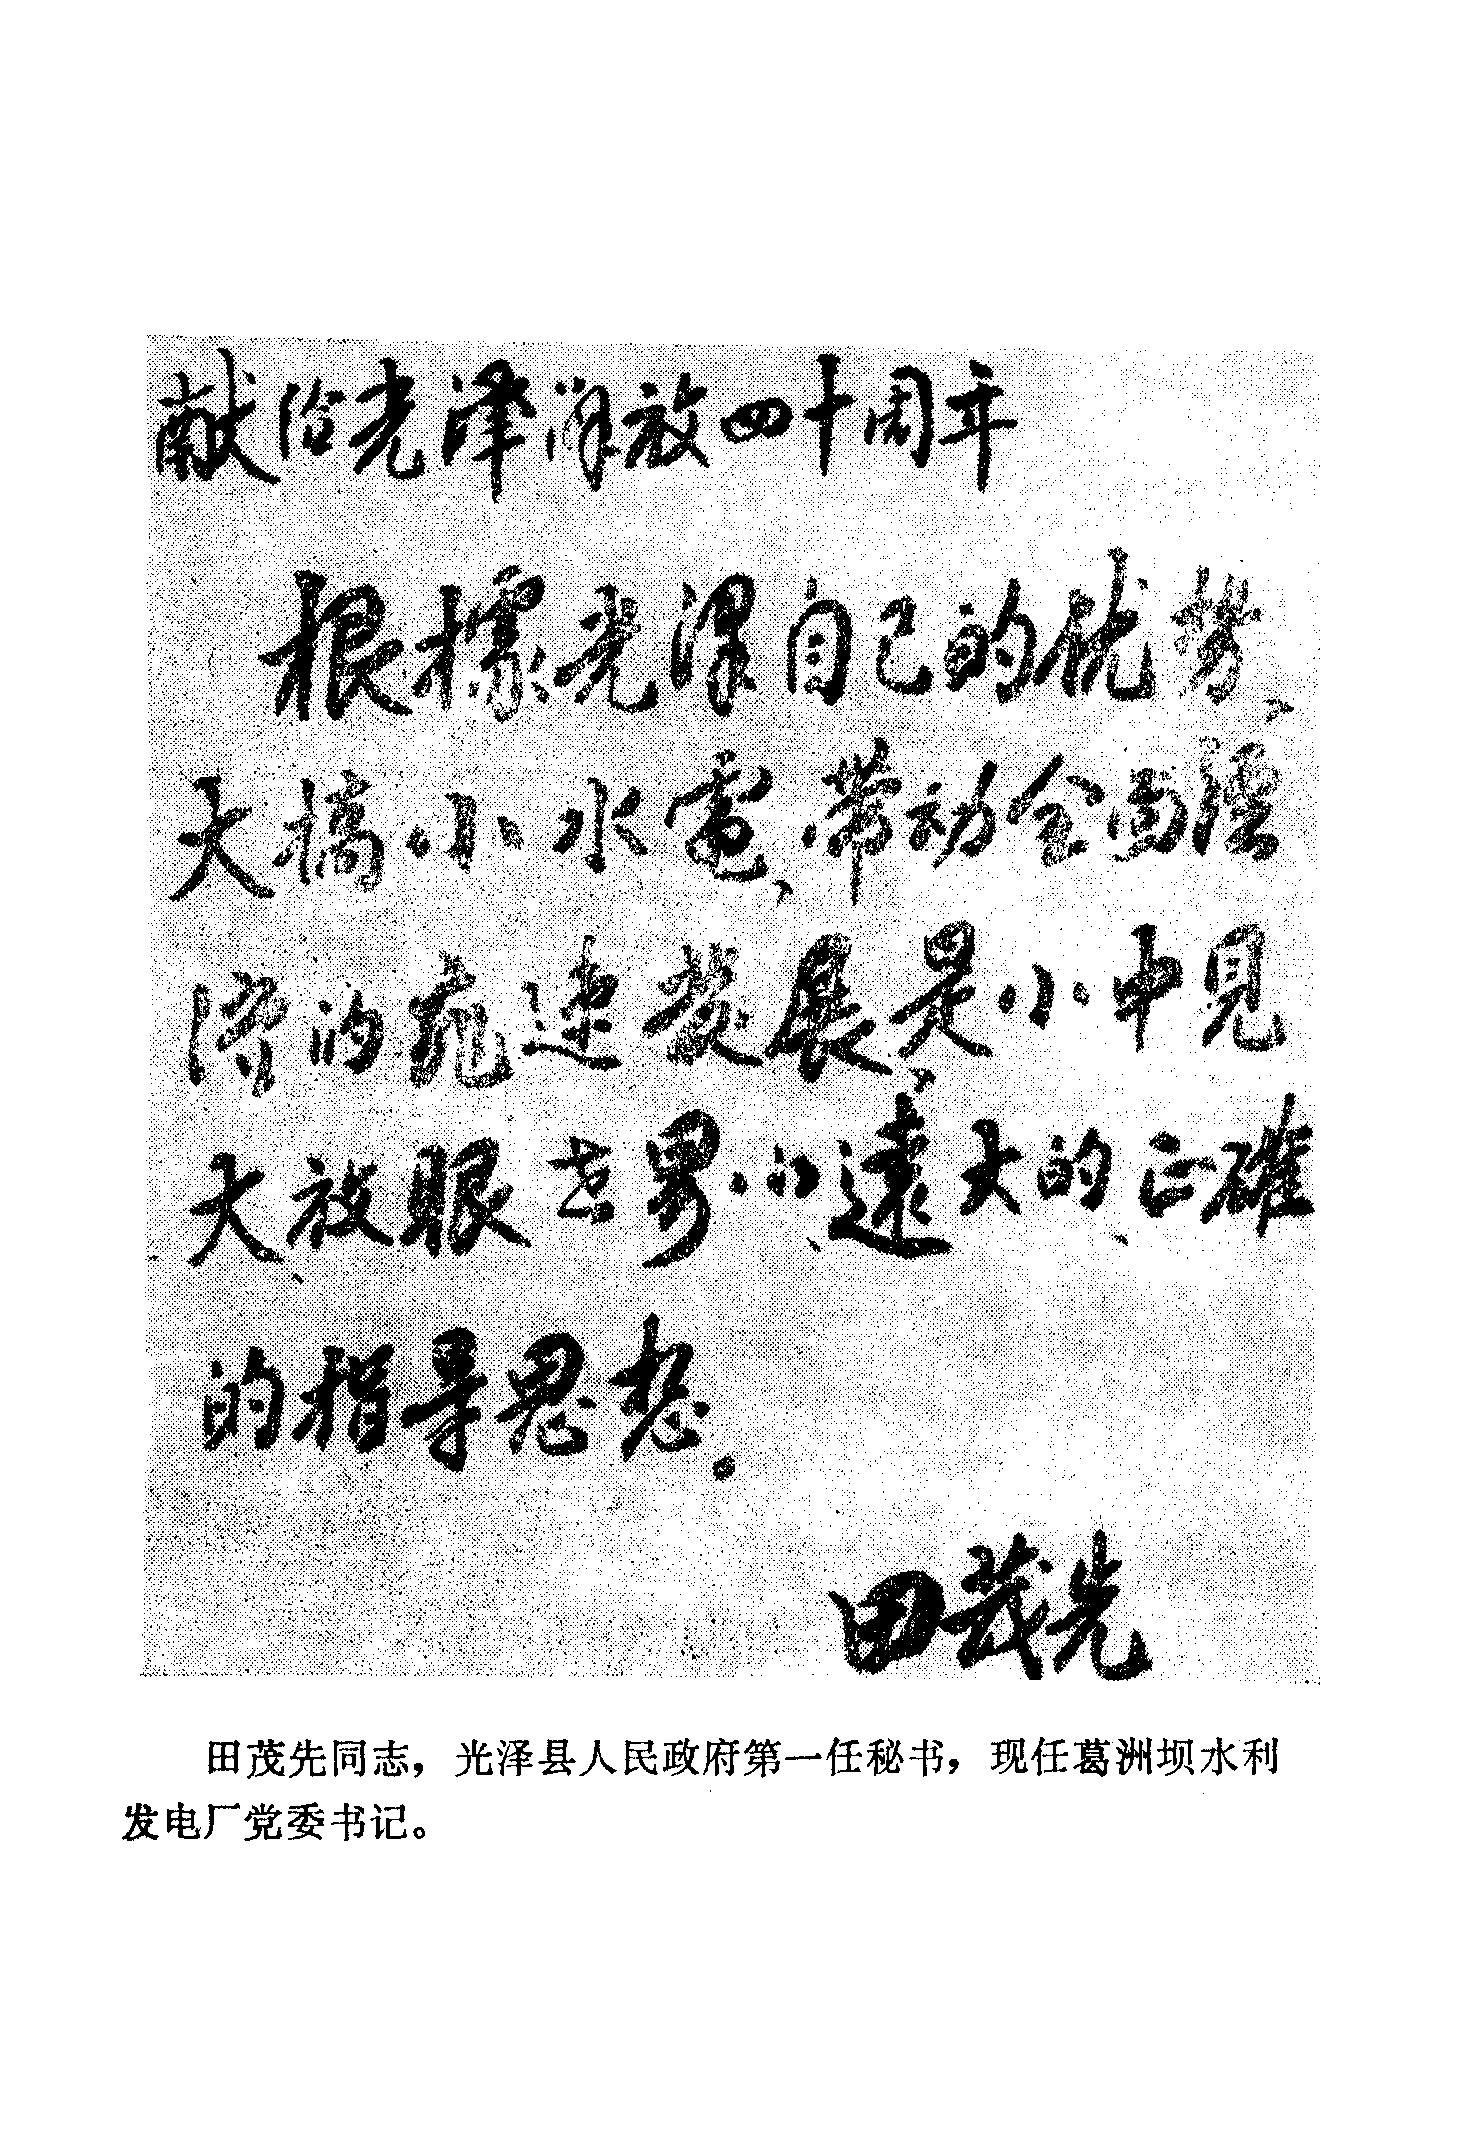 献给光泽解放四十周年
根據光泽自己的优势、
大搞小水電、带动全面経
济的飞速发展、是小中见
大、放眼世界、小、遠大的、正確
的指导思想。
田茂先
田茂先同志，光泽县人民政府第一任秘书，现任葛洲坝水利
发电厂党委书记。